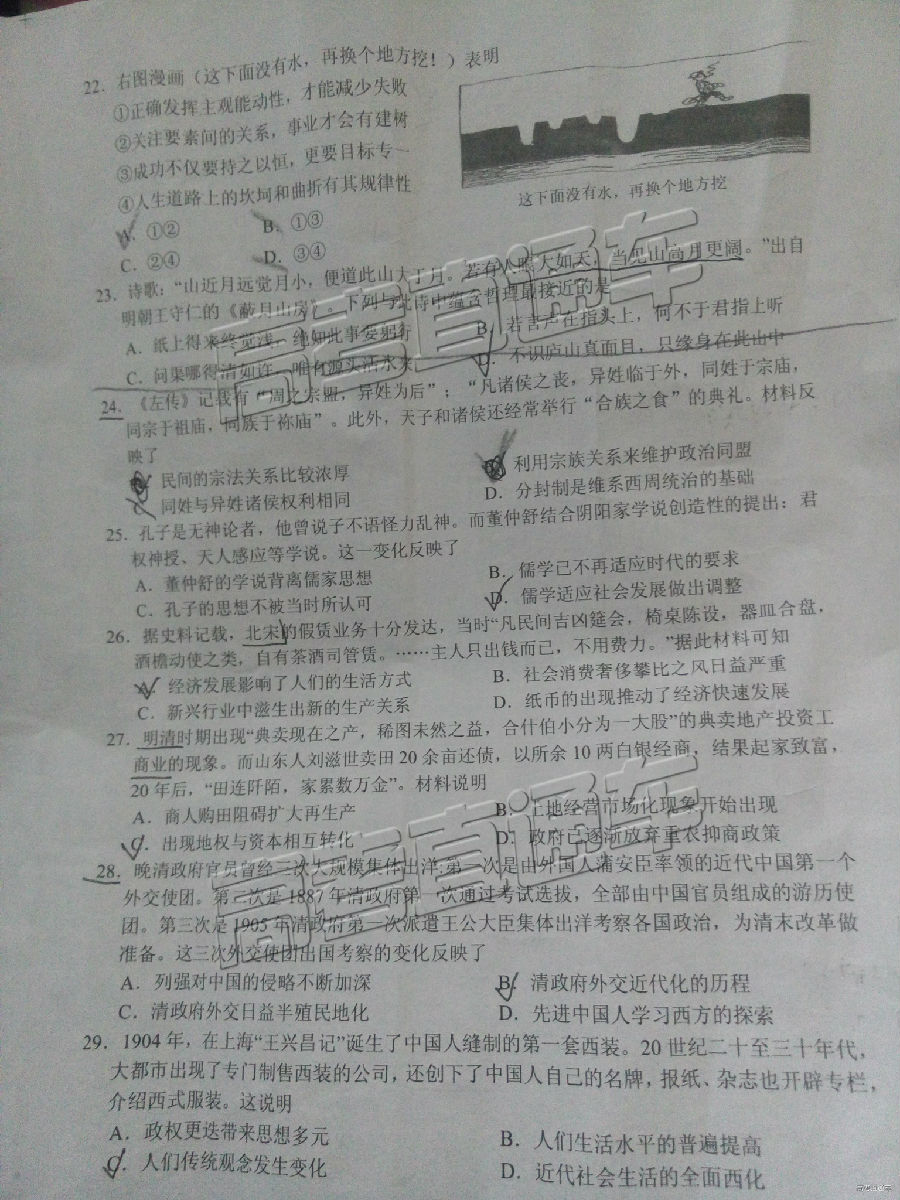 22．右图漫画（这下面没有水，再换个地方挖！）表明
①正确发挥主观能动性，才能减少失败
②关注要素间的关系，事业才会有建树
③成功不仅要持之以恒，更要目标专一
④人生道路上的坎坷和曲折有其规律性
A．①② B．①③
C．②④ D．③④
这下面没有水，再换个地方挖
23．诗歌：“山近月远觉月小，便道此山大于月。若有人眼大如天，当见山高月更阔。”出自
明朝王守仁的《蔽月山房》。下列与此诗中蕴含哲理最接近的是
A．纸上得来终觉浅，绝知此事要躬行 B．若言声在指头上，何不于君指上听
C．问渠哪得清如许，唯有源头活水来 D．不识庐山真面目，只缘身在此山中
24．《左传》记载有“周之宗盟，异姓为后”；“凡诸侯之丧，异姓临于外，同姓于宗庙，
同宗于祖庙，同族于祢庙”。此外，天子和诸侯还经常举行“合族之食”的典礼。材料反
映了
民间的宗法关系比较浓厚 利用宗族关系来维护政治同盟
C．同姓与异姓诸侯权利相同 D．分封制是维系西周统治的基础
25．孔子是无神论者，他曾说子不语怪力乱神。而董仲舒结合阴阳家学说创造性的提出：君
权神授、天人感应等学说。这一变化反映了
A．董仲舒的学说背离儒家思想 B．儒学已不再适应时代的要求
C．孔子的思想不被当时所认可 D．儒学适应社会发展做出调整
26．据史料记载，北宋的假赁业务十分发达，当时“凡民间吉凶筵会，椅桌陈设，器皿合盘，
酒檐动使之类，自有茶酒司管赁。……主人只出钱而已，不用费力。”据此材料可知
经济发展影响了人们的生活方式 B．社会消费奢侈攀比之风日益严重
C．新兴行业中滋生出新的生产关系 D．纸币的出现推动了经济快速发展
27．明清时期出现“典卖现在之产，稀图未然之益，合什伯小分为一大股”的典卖地产投资工
商业的现象。而山东人刘滋世卖田 20 余亩还债，以所余 10 两白银经商，结果起家致富，
20 年后，“田连阡陌，家累数万金”。材料说明
A．商人购田阻碍扩大再生产 B．土地经营市场化现象开始出现
C．出现地权与资本相互转化 D．政府已逐渐放弃重农抑商政策
28．晚清政府官员曾经三次大规模集体出洋：第一次是由外国人蒲安臣率领的近代中国第一个
外交使团。第二次是 1887 年清政府第一次通过考试选拔，全部由中国官员组成的游历使
团。第三次是 1905 年清政府第一次派遣王公大臣集体出洋考察各国政治，为清末改革做
准备。这三次外交使团出国考察的变化反映了
A．列强对中国的侵略不断加深 B．清政府外交近代化的历程
C．清政府外交日益半殖民地化 D．先进中国人学习西方的探索
29．1904 年，在上海“王兴昌记”诞生了中国人缝制的第一套西装。20 世纪二十至三十年代，
大都市出现了专门制售西装的公司，还创下了中国人自己的名牌，报纸、杂志也开辟专栏，
介绍西式服装。这说明
A．政权更迭带来思想多元 B．人们生活水平的普遍提高
C．人们传统观念发生变化 D．近代社会生活的全面西化
高考直通车
高考直通车